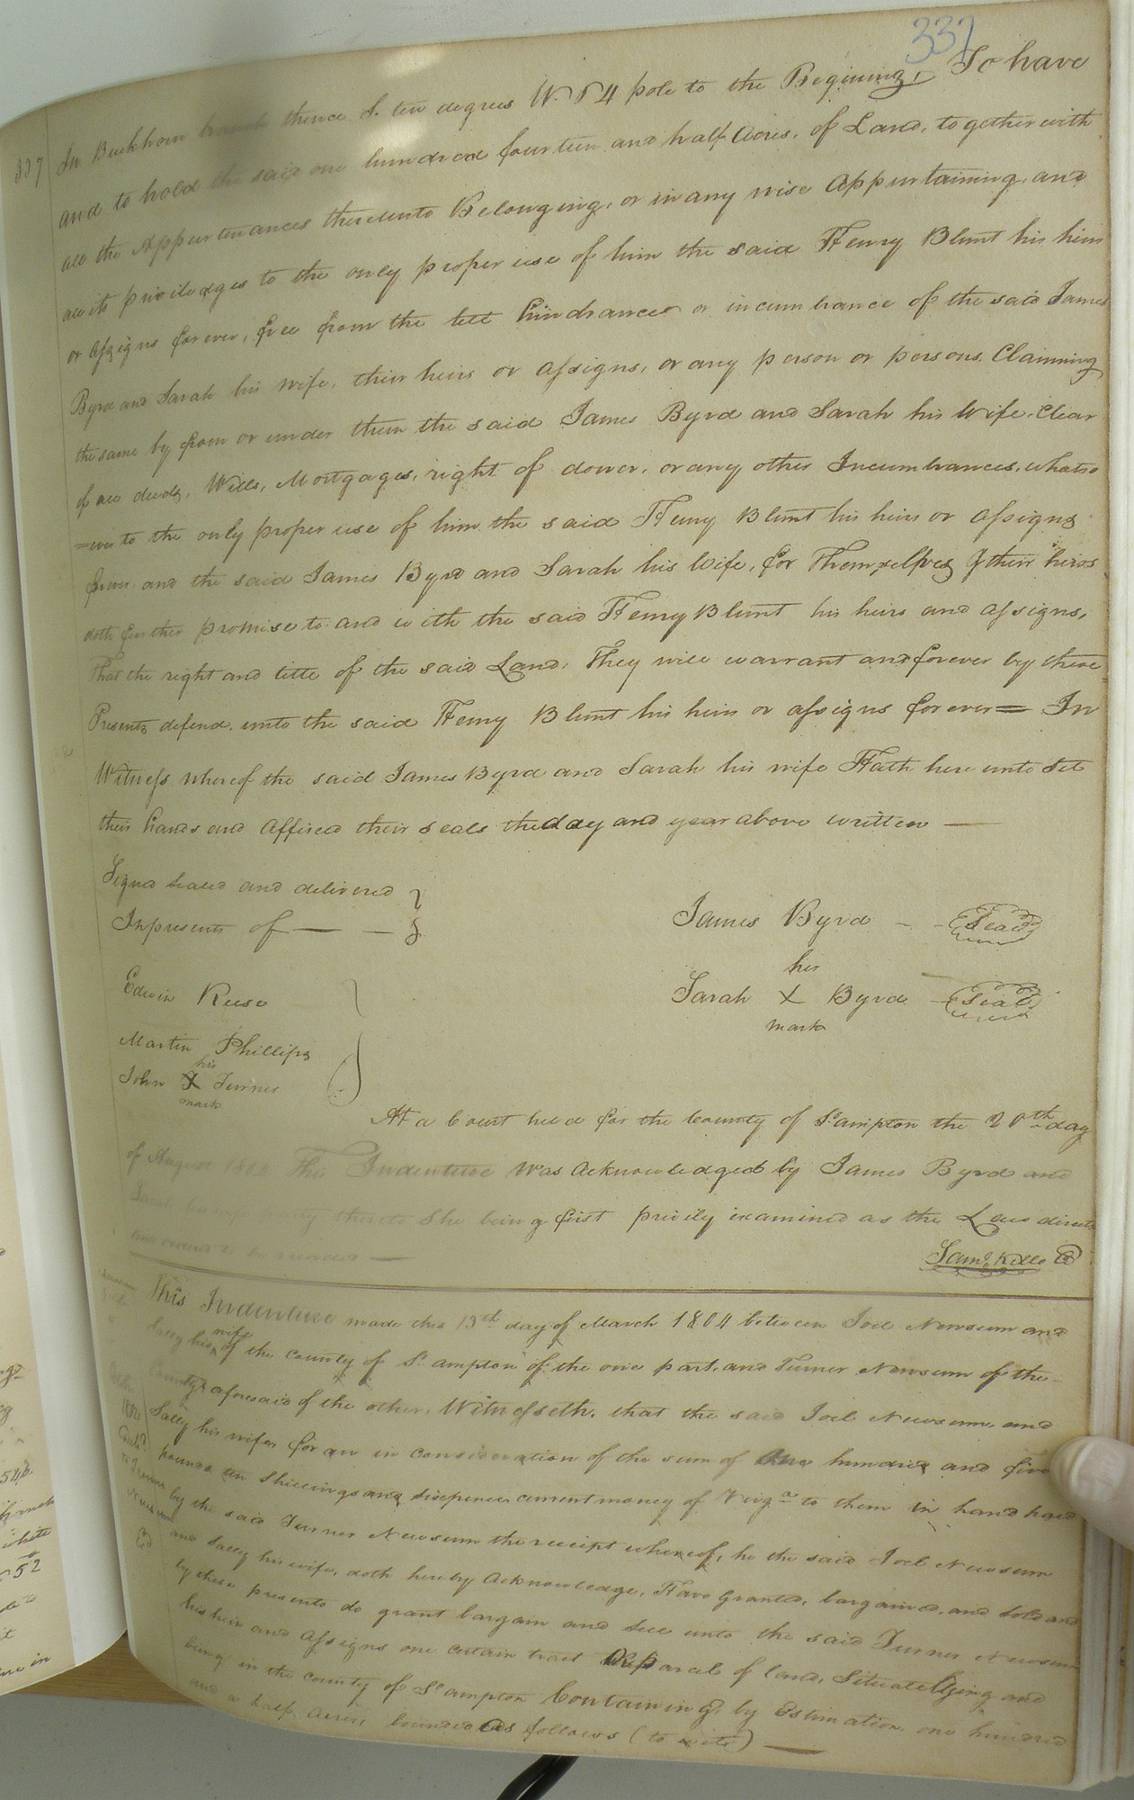 337
337 In Buckhorn branch thence S. ten degrees W. 84 pole to the Begining, To have
and to hold the said one hundred fourteen and half Acres, of Land, together with
all the Appurtenances thereunto Belonging, or in any wise Appurtaining, and
all its priviledges to the only proper use of him the said Henry Blunt his heirs
or assigns forever, free from the lett hindrances or incumbrance of the said James
Byrd and Sarah his wife, their heirs or assigns, or any person or persons Claiming
the same by from or under them the said James Byrd and Sarah his Wife, Clear
of all deeds, Wills, Mortgages, right of dower, or any other Incumbrances, whatso
=ever to the only proper use of him the said Henry Blunt his heirs or assigns
forever and the said James Byrd and Sarah his Wife, for Themselves & their heirs
doth further promise to and with the said Henry Blunt his heirs and assigns,
That the right and title of the said Land, They will warrant and forever by these
Presents defend unto the said Henry Blunt his heirs or assigns forever = In
Witness whereof the said James Byrd and Sarah his wife Hath here unto Set
their hands and affixed their seals the day and year above written —
Signd Sealed and delivered
In presents of —
James Byrd - Seal
his
Sarah X Byrd - Seal
mark
Edwin Reese
Martin Phillips
his
John X Turner
mark
At a Court held for the County of S.ampton the 20th day
of August 1804 This Indenture was Acknowledged by James Byrd and
Sarah party thereto She being first privily examined as the Law directs
and ordered to be recorded —
Saml. Kello C
This Indenture made this 13th day of March 1804 between Joel Newsum and
wife
Sally his of the County of S.ampton of the one part, and Turner Newsum of the
County aforesaid of the other, Witnesseth, that the said Joel Newsum, and
Sally his wife for an in consideration of the sum of hundred and five
pounds Shillings and sixpence current money of Virga. to them in hand paid
by the said Turner Newsum the receipt whereof, he the said Joel Newsum
and Sally his wife, doth hereby Acknowledge, Have Granted, bargained, and Sold and
by these presents do grant bargain and Sell unto the said Turner Newsum
his heirs and assigns one certain tract or parcel of land, Situate lying and
being in the County of S.ampton Containing by Estimation one hundred
and a half Acres, bounded as follows (to wit) —